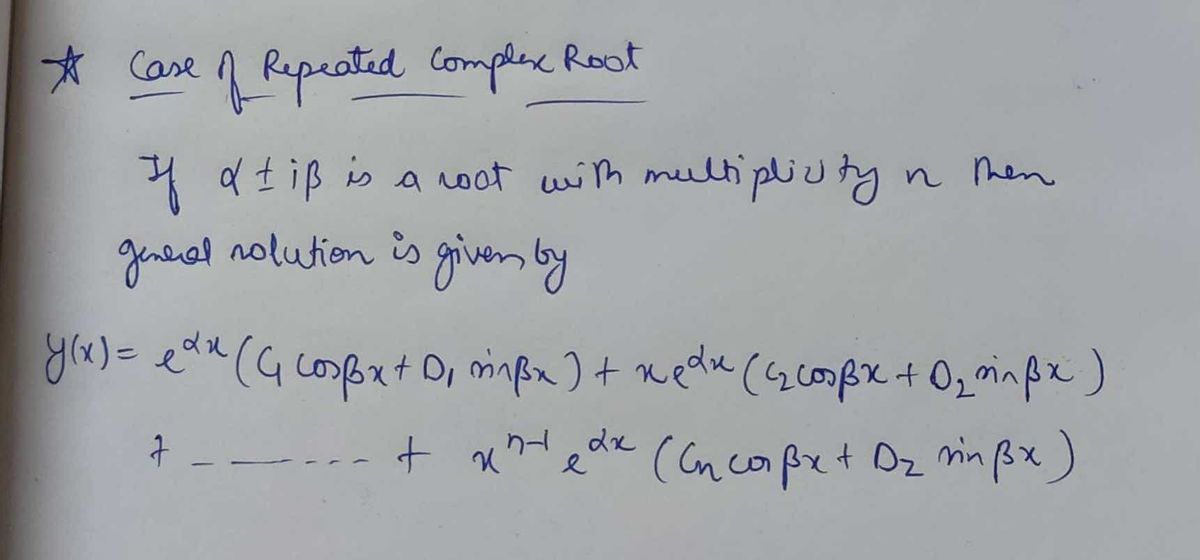 ☆ Case of Repeated Complex Root
If α ± iβ is a root with multiplicity n then
general solution is given by
y(x) = e^{αx} (C₁ cosβx + D₁ sinβx) + xe^{αx} (C₂ cosβx + D₂ sinβx)
+ - - - - - - + x^{n-1} e^{αx} (Cn cos βx + D₂ sin βx)